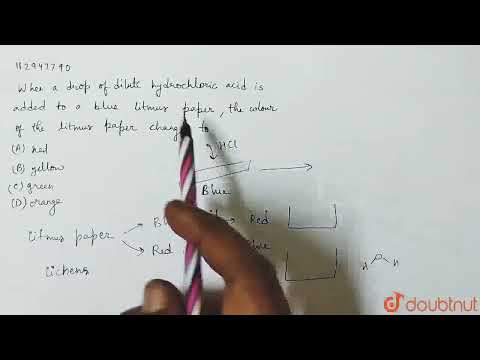 112947790
When a drop of dilute hydrochloric acid is
added to a blue litmus paper, the colour
of the litmus paper changes to
(A) red
(B) yellow
(C) green
(D) orange
HCl
Blue
Litmus paper
Red
Red
Lichens
H H
doubtnut